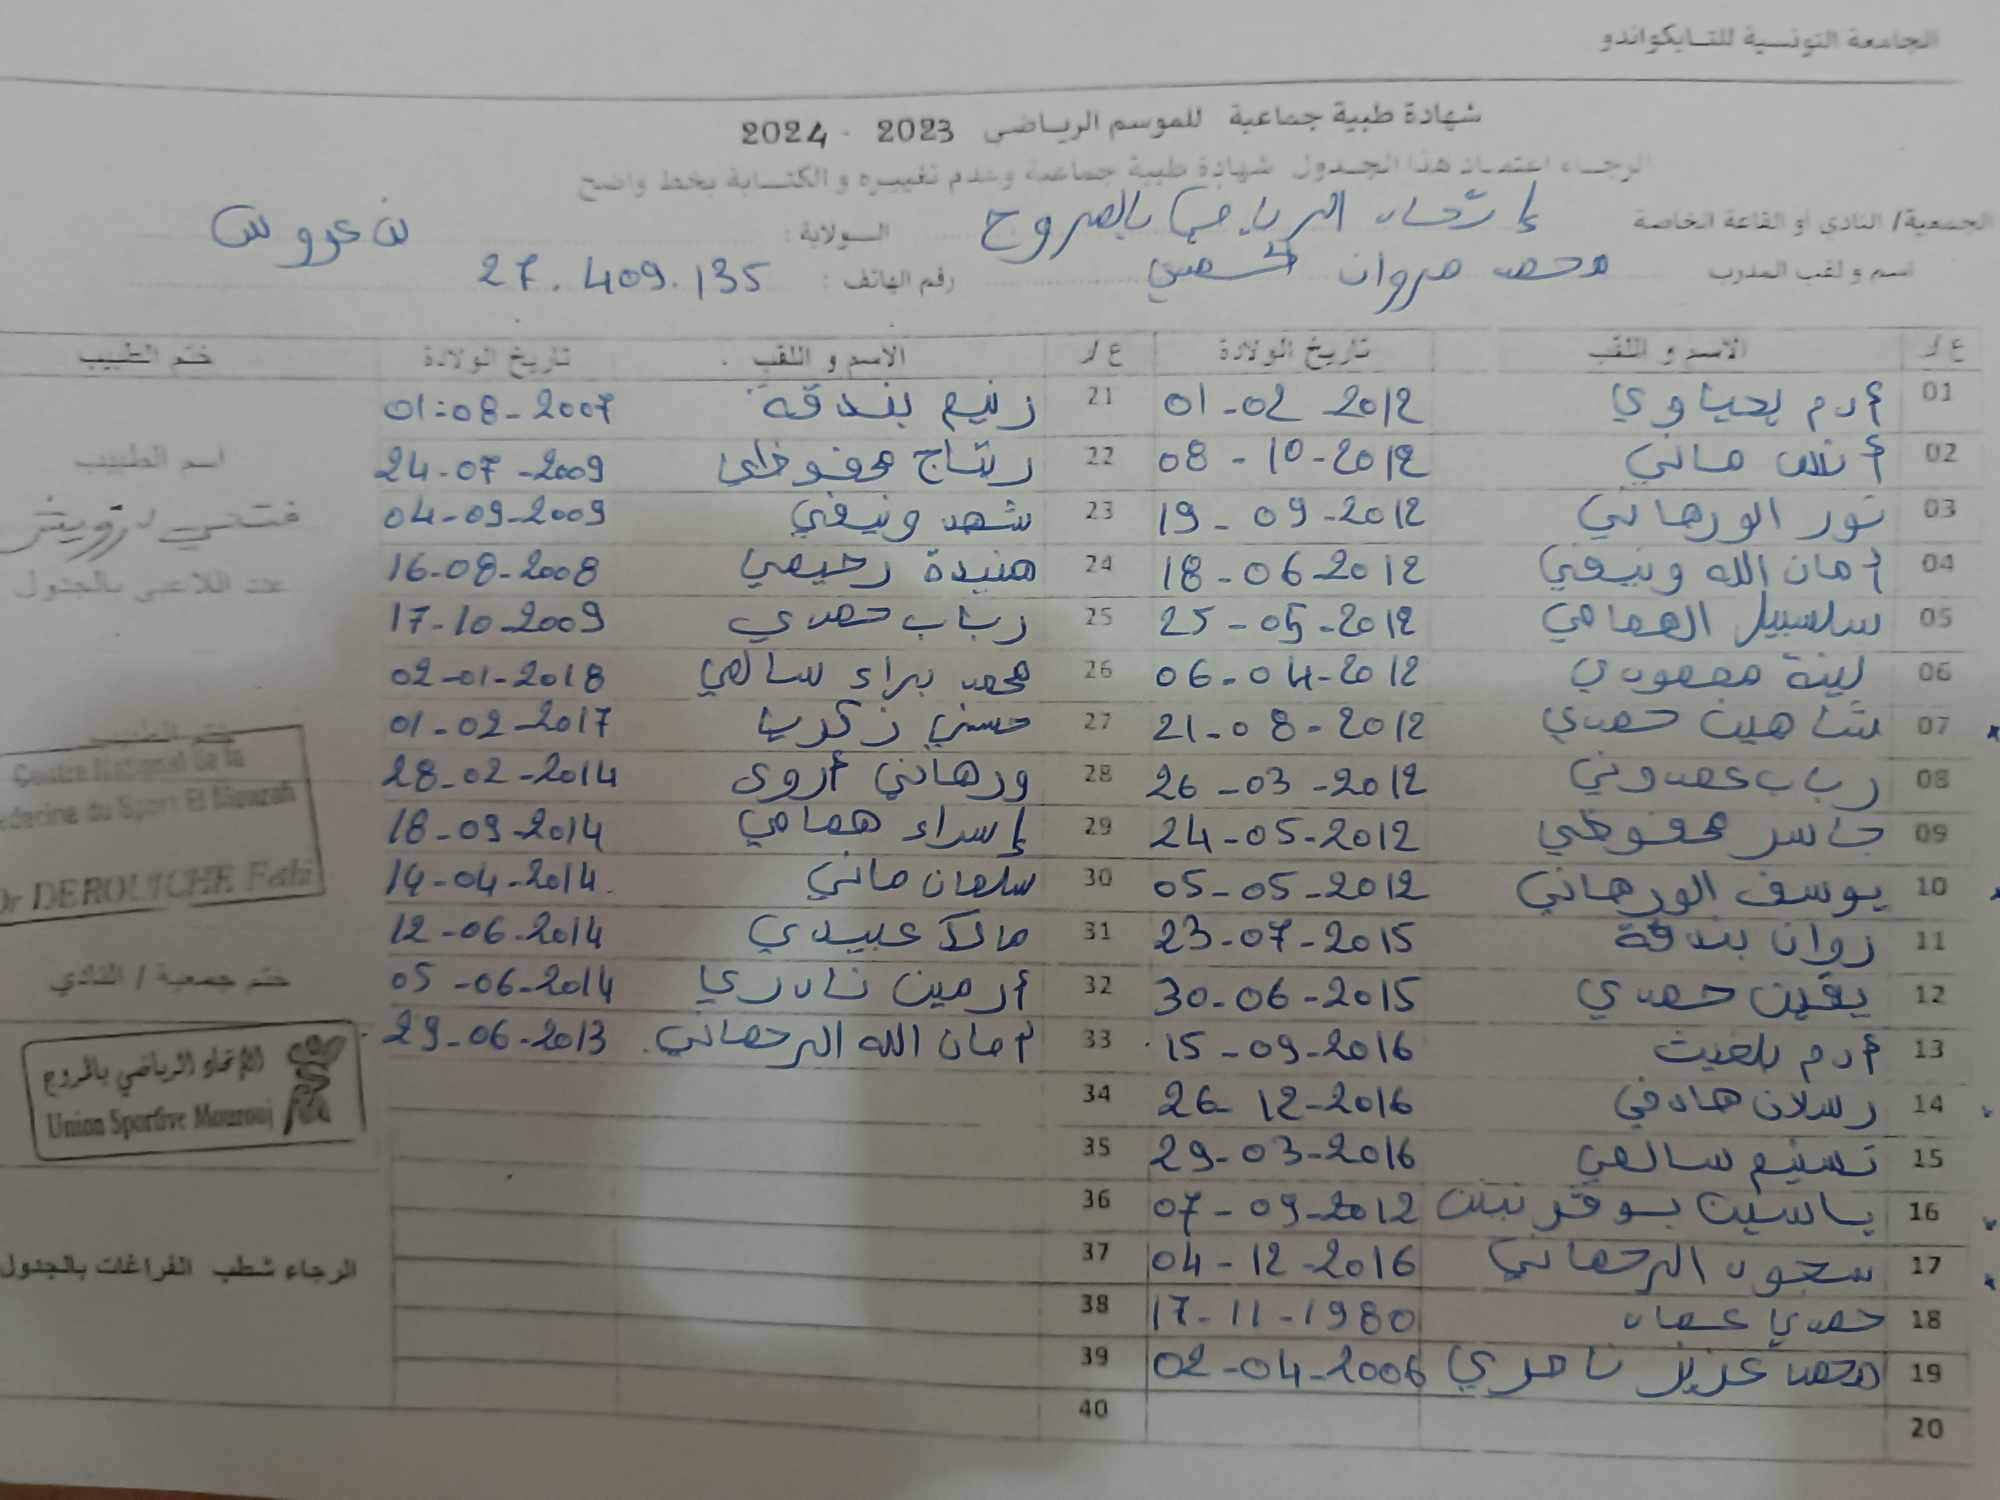 الجامعة التونسية للتايكواندو
شهادة طبية جماعية للموسم الرياضي 2023 - 2024
الرجاء اعتماد هذا الجدول شهادة طبية جماعية وعدم تغييره و الكتابة بخط واضح
الجمعية/ النادي أو القاعة الخاصة إتحاد الرياضي بالمروج الولاية : بن عروس
اسم و لقب المدرب محمد مروان رقم الهاتف : 27.409.135
ع/ر الاسم و اللقب تاريخ الولادة ع/ر الاسم و اللقب تاريخ الولادة ختم الطبيب
01 أدم يحياوي 01-02-2012 21 رنيم بندقة 01-08-2007
02 أنس ماني 08-10-2012 22 رتاج محفوظي 24-07-2009
اسم الطبيب
03 نور الورهاني 19-09-2012 23 شهد ونيفي 04-09-2009
فتحي درويش
04 أمان الله ونيفي 18-06-2012 24 هنيدة رحيمي 16-08-2008
عدد اللاعبين بالجدول
05 سلسبيل الهمامي 25-05-2012 25 رباب حمدي 17-10-2009
06 لينة 06-04-2012 26 محمد براء سالمي 02-01-2018
07 شاهين حمدي 21-08-2012 27 حسني زكريا 01-02-2017
ختم الطبيب
Centre National de la
Medecine du Sport El Menzah
Dr DEROUICHE Fethi
08 رباب عمدوني 26-03-2012 28 ورهاني أروى 28-02-2014
09 جاسر محفوظي 24-05-2012 29 إسراء همامي 18-09-2014
10 يوسف الورهاني 05-05-2012 30 سلمان ماني 14-04-2014
11 روان بندقة 23-07-2015 31 مالك عبيدي 12-06-2014
12 يقين حمدي 30-06-2015 32 أرمين نادري 05-06-2014
ختم جمعية / النادي
13 أدم بلغيث 15-09-2016 33 أمان الله الرحماني 29-06-2013
الإتحاد الرياضي بالمروج
Union Sportive Mourouj
14 رسلان هادفي 26-12-2016 34
15 تسنيم سالمي 29-03-2016 35
16 ياسين 07-09-2012 36
17 سجود الرحماني 04-12-2016 37
الرجاء شطب الفراغات بالجدول
18 حمدي عماد 17-11-1980 38
19 محمد عزيز 02-04-2006 39
20 40